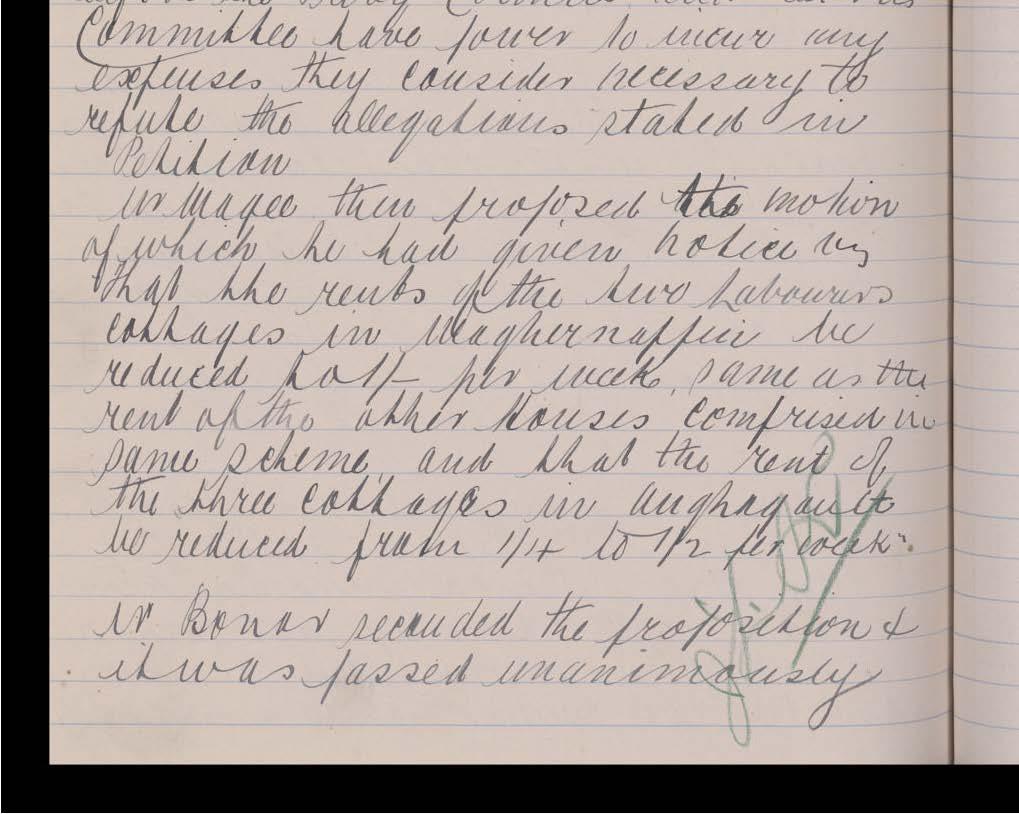 the Privy Council
Committee have power to incur any
expenses they consider necessary to
refute the allegations stated in
Petition
Mr Magee then proposed the motion
of which he had given notice viz
"That the rents of the two Labourers
cottages in Meaghernaffin be
reduced to 1/- per week, same as the
rent of the other Houses comprised in
same scheme, and that the rent of
the three cottages in Aughagault
be reduced from 1/4 to 1/2 per week".
Mr Bonar seconded the proposition &
it was passed unanimously